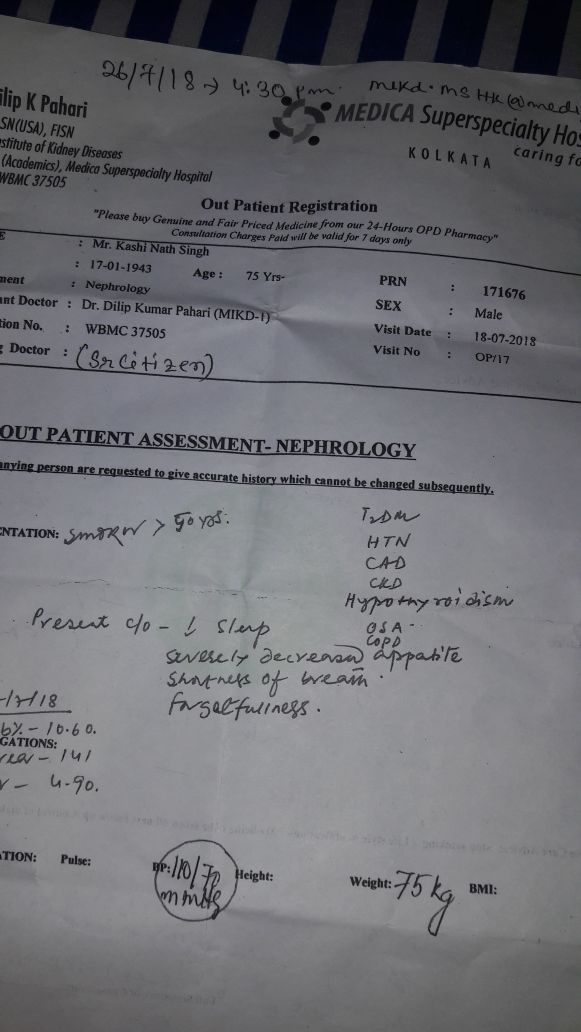 26/7/18 → 4:30 pm. mikd.msHk@medi
ilip K Pahari
SN(USA), FISN
stitute of Kidney Diseases
(Academics), Medica Superspecialty Hospital
WBMC 37505
MEDICA Superspecialty Hos
KOLKATA
caring fo
Out Patient Registration
"Please buy Genuine and Fair Priced Medicine from our 24-Hours OPD Pharmacy"
Consultation Charges Paid will be valid for 7 days only
E : Mr. Kashi Nath Singh
: 17-01-1943 Age : 75 Yrs-
PRN : 171676
ment : Nephrology
SEX : Male
ant Doctor : Dr. Dilip Kumar Pahari (MIKD-1)
Visit Date : 18-07-2018
tion No. : WBMC 37505
Visit No : OP/17
g Doctor : (Sr Citizen)
OUT PATIENT ASSESSMENT- NEPHROLOGY
anying person are requested to give accurate history which cannot be changed subsequently.
NTATION: smoker > 50 yrs.
T2DM
HTN
CAD
CKD
Hypothyroidism
OSA
COPD
Present c/o - ↓ Sleep
severely decreased appatite
Shortness of breath.
forgetfullness.
/7/18
b% - 10.60.
GATIONS:
rea - 141
- 4.90.
TION: Pulse: BP: 110/70 mmHg Height: Weight: 75 kg BMI: